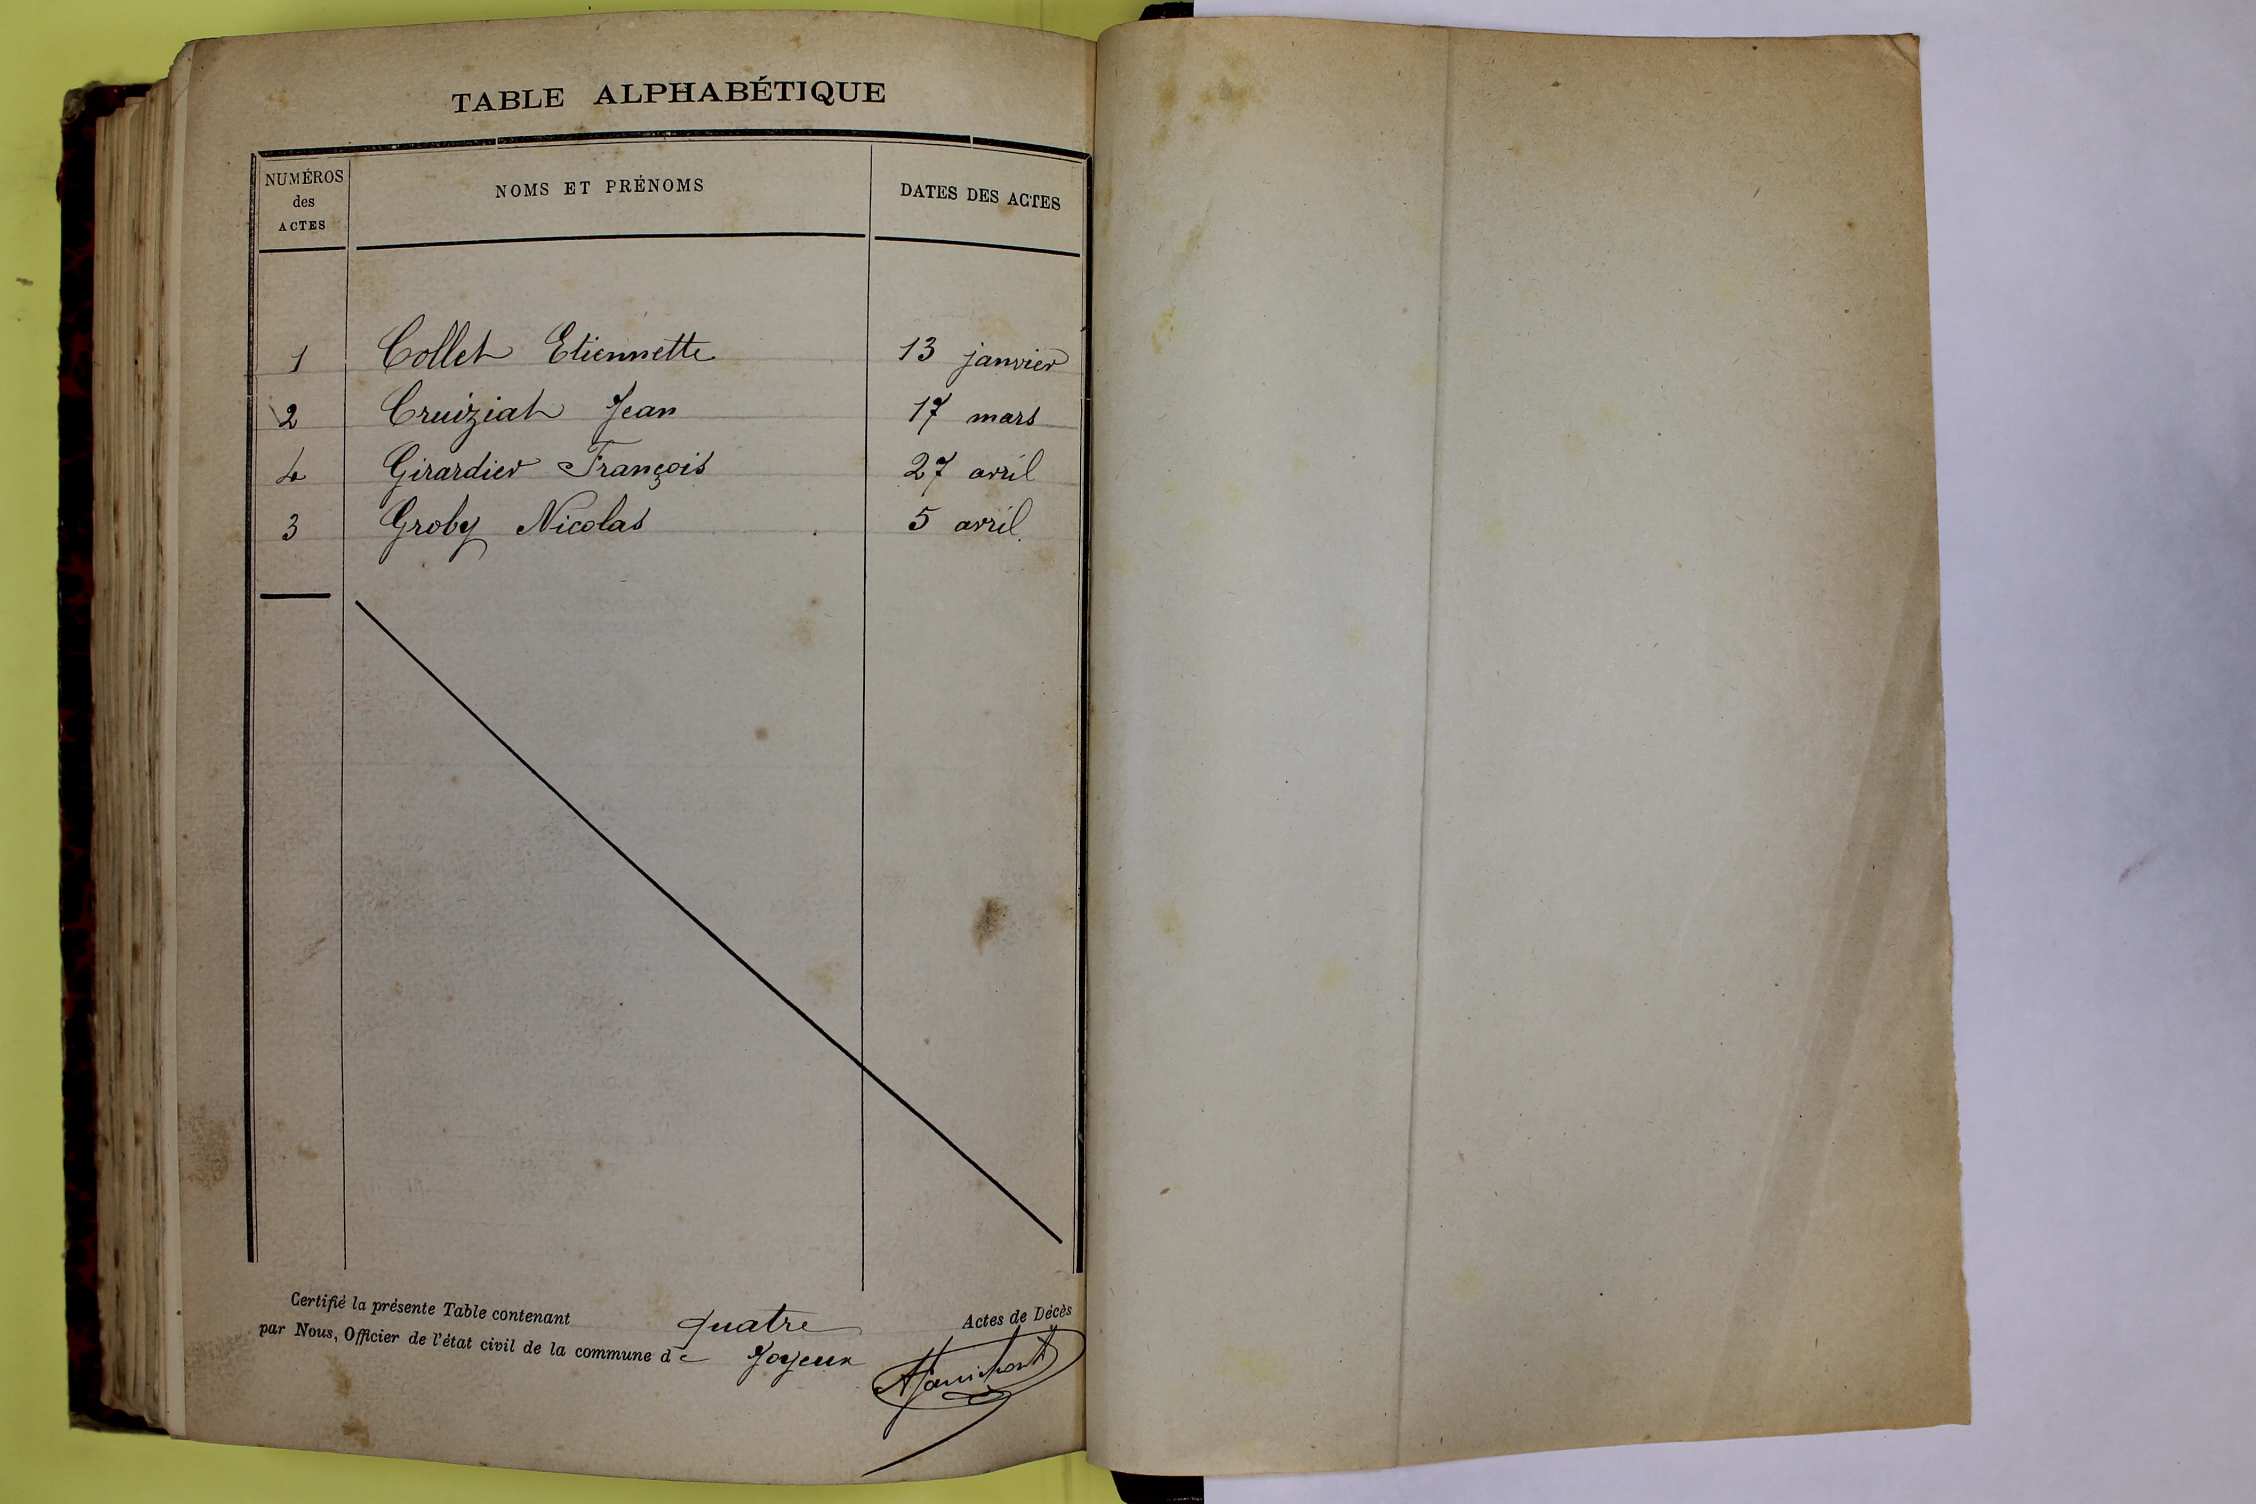 TABLE ALPHABÉTIQUE
NUMÉROS des ACTES NOMS ET PRÉNOMS DATES DES ACTES
1 Collet Etiennette 13 janvier
2 Cruiziat Jean 17 mars
4 Girardier François 27 avril
3 Groby Nicolas 5 avril.
Certifié la présente Table contenant quatre Actes de Décès
par Nous, Officier de l'état civil de la commune de Joyeux